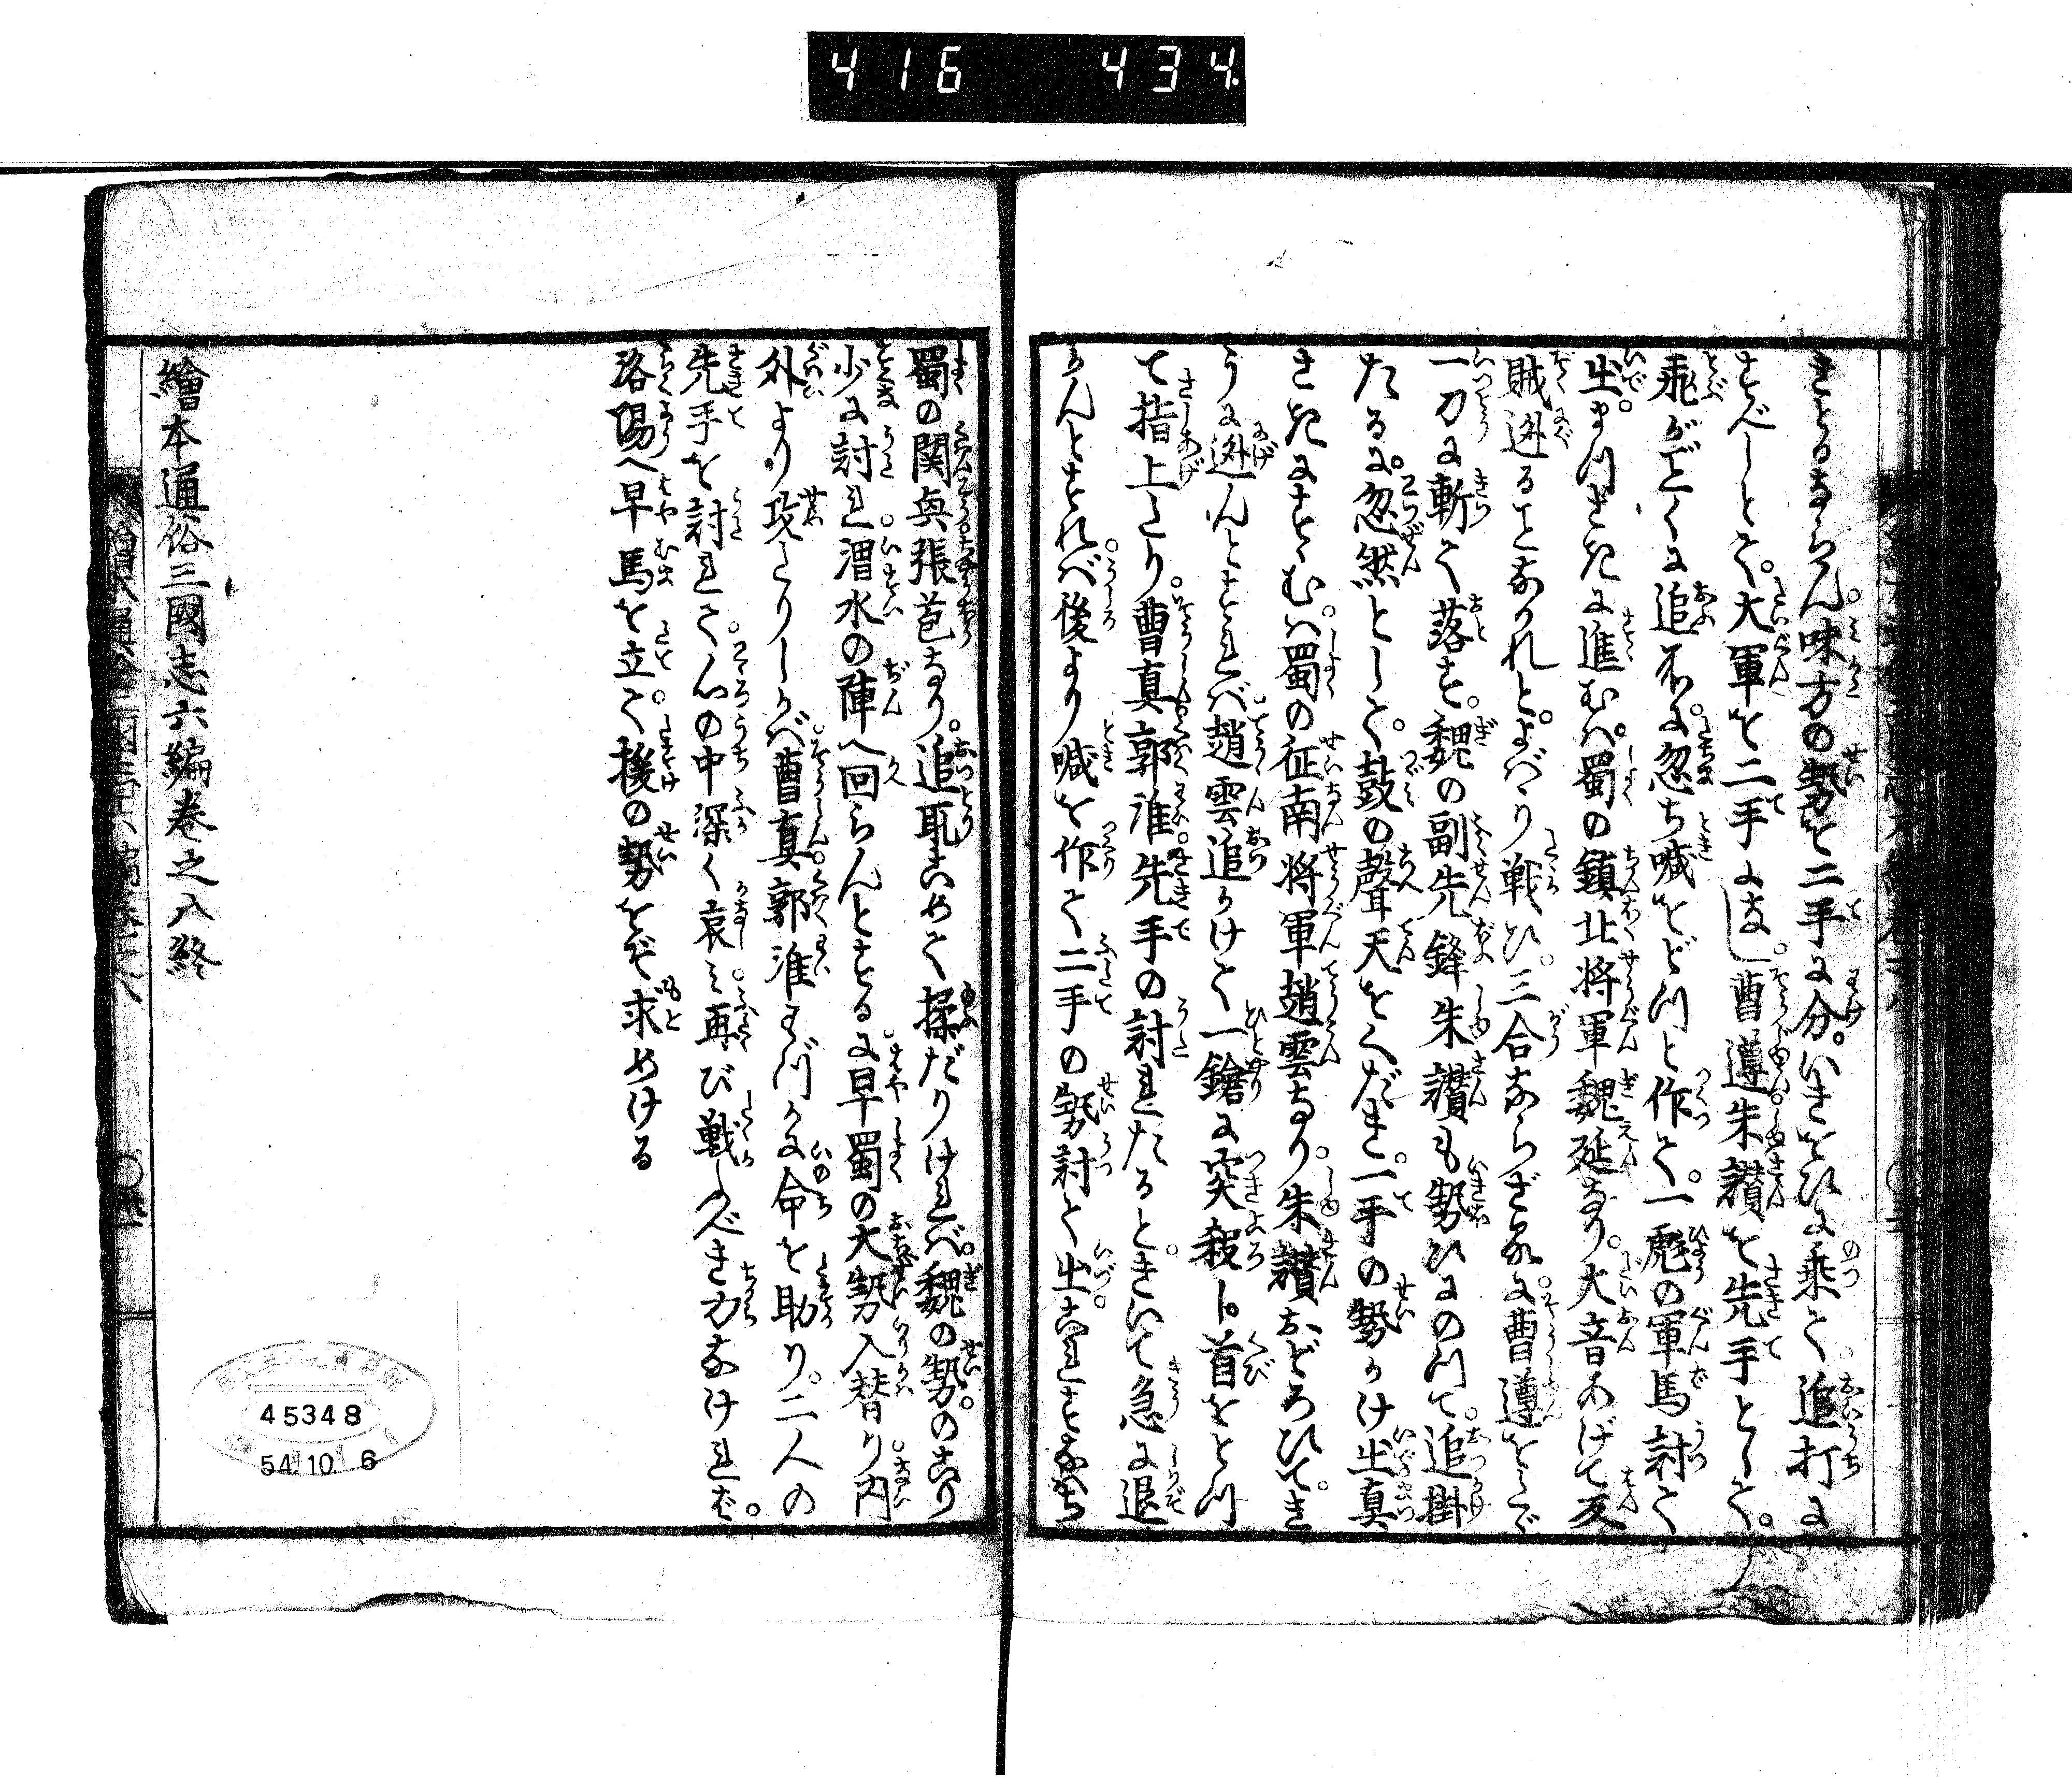 416 434
きとるならん。味方の勢を二手に分。いきをひに乗て。追打に
すべしとて。大軍を二手になし。曹遵朱讃を先手として。
飛がごとくに追ふ所に。忽ち喊をどつと作て。一彪の軍馬討て
出。まつさきに進むハ。蜀の鎮北将軍魏延なり。大音あげて反
賊迯ることなかれと。よバゝり戦ひ。三合ならざるに。曹遵をたゞ
一刀に斬て落す。魏の副先鋒朱讃も勢ひにのつて。追掛
たるに。忽然として。鼓の聲天をくだき。一手の勢かけ出真
さきにすゝむハ。蜀の征南将軍趙雲なり。朱讃おどろひて。き
うに迯んとすれバ。趙雲追かけて一鎗に突殺し。首をとつ
て指上たり。曹真郭淮。先手の討れたるときいて急に退
かんとすれバ。後より喊を作て二手の勢討て出。これすなはち
蜀の関興張苞なり。追取こめて揉だりけれバ。魏の勢。のこり
少に討れ。渭水の陣へ回らんとするに。早蜀の大勢入替り。内
外より攻たりしかバ。曹真。郭淮わづかに命を助り。二人の
先手を討れて。心の中深く哀ミ。再び戦ふべき力なけれバ。
洛陽へ早馬を立て。援の勢をぞ求めける
繪本通俗三國志六編巻之八終
45348
54.10.6